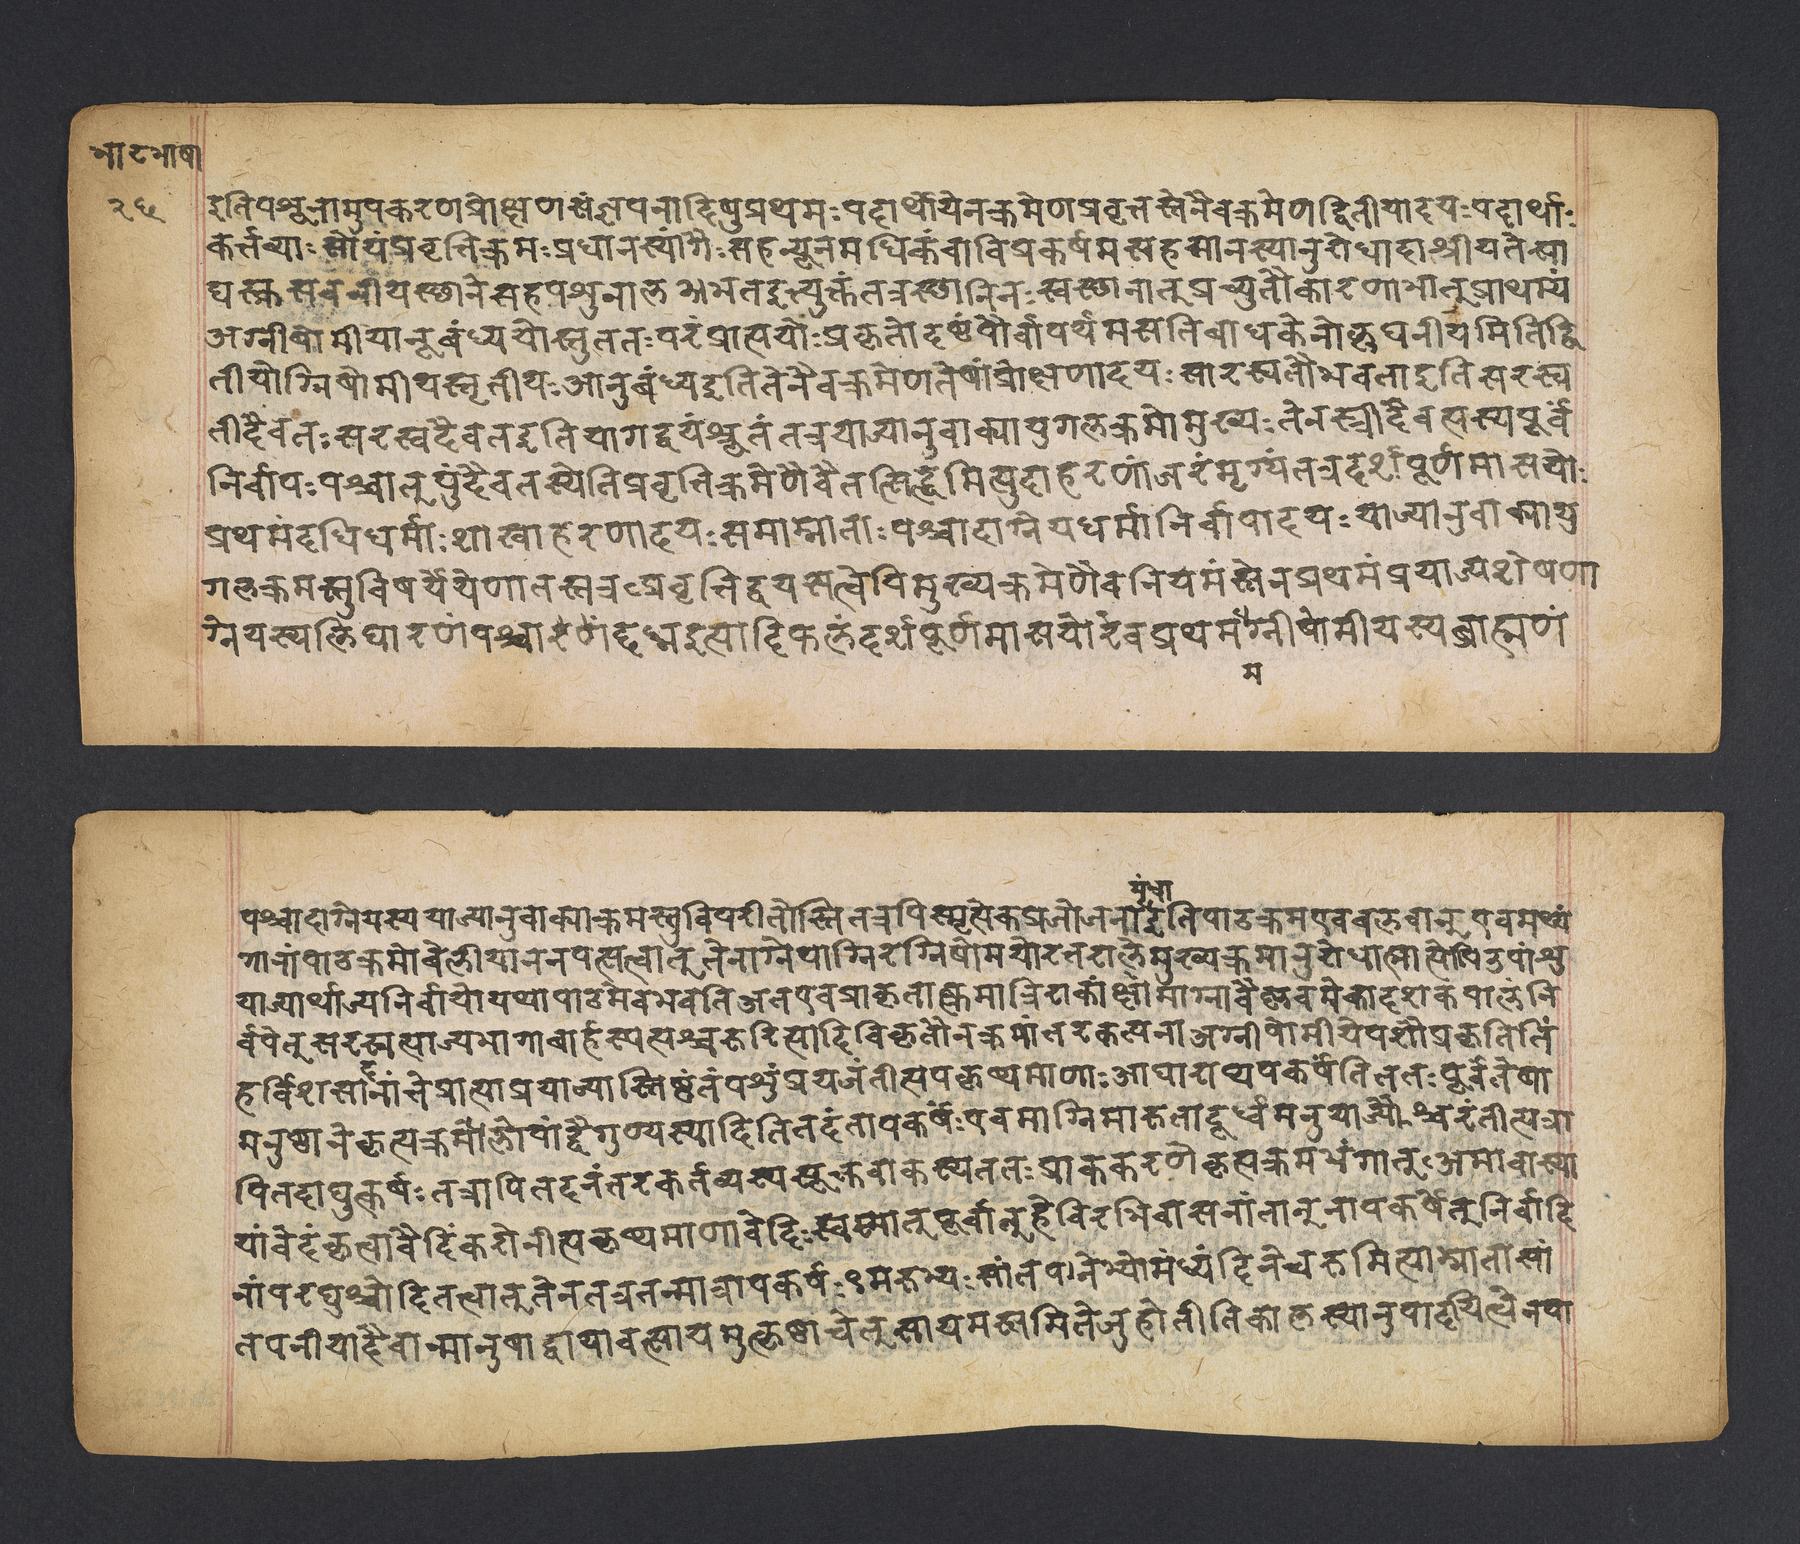 भाटभाषा
२६
इतिपशूनामुपकरणप्रोक्षणसंज्ञपनादिषुप्रथमः पदार्थोयेनक्रमेणप्रवृत्तस्तेनैवक्रमेणद्वितीयादयः पदार्थाः
कर्त्तव्याः सोयंप्रवृत्तिक्रमः प्रधानस्यांगैः सहन्यूनमधिकंवाविप्रकर्षमसहमानस्यानुरोधादाश्रीयतेसा
द्यस्क्रसवनीयस्थानेसहपशुनालभभतइत्युक्तंतत्रस्थानिनः स्वस्थानात् प्रच्युतौकारणाभात् प्राथम्यं
अग्नीषोमीयानूबंध्ययोस्तुततः परंप्राप्तयोः प्रकृतोदृष्टंपौर्वापर्यमसतिबाधकेनोल्लंघनीयमितिद्वि
तीयोग्निषोमीयस्तृतीयः आनुबंध्यइतितेनैवक्रमेणतेषांप्रोक्षणादयः सारस्वतौभवताइतिसरस्व
तीदैवतः सरस्वदैवतइतियागद्वयंश्रुतं तत्रयाज्यानुवाक्यायुगलक्रमोमुख्यः तेनस्त्रीदैवत्यस्यपूर्वं
निर्वापः पश्चात् पुंदैवतस्येतिप्रवृत्तिक्रमेणैवैतत्सिद्धमित्युदाहरणांतरंमृग्यंतत्रदर्शपूर्णमासयोः
प्रथमंदधिधर्माः शाखाहरणादयः समाम्नाताः पश्चादाग्नेयधर्मानिर्वापादयः याज्यानुवाक्यायु
गलक्रमस्तुविपर्ययेणातस्तत्रप्रवृत्तिद्वयसत्वेपिमुख्यक्रमेणैवनियमंस्तेनप्रथमंप्रयाज्यशेषणा
ग्नेयस्यभिघारणंपश्चारणंदध्नइत्यादिफलंदर्शपूर्णमासयोरेवप्रथमंग्नीषोमीयस्यब्राह्मणं
म
यंधा
पश्चादाग्नेयस्ययाज्यानुवाक्याक्रमस्तुविपरीतोस्तितत्रपिस्मृत्येकप्रजोजनाइतिपाठक्रमएवबलवान् एवमथ्यं
गानांपाठक्रमोबलीयाननपत्सत्वात् तेनाग्नेयाग्निरग्निषोमयोरतरालेमुख्यक्रमानुरोधात्प्राप्तोपिउपांशु
याज्यार्थाज्यनिर्वापोयथापाठमेवभवति अतएवप्राकृतात्क्रमान्निराकांक्षोमाग्नावैष्णवमेकादशकपालंनि
र्वपेत् सरस्वत्याज्यभागाबार्हस्पत्यश्चरुरित्यादिविकृतौनक्रमांतरकल्पना अग्नीषोमीयेपशौप्रकृतितिं
हर्विशसांनांतेप्राप्याप्रयाज्यास्तिष्ठंतंपशुंप्रयजंतीत्यपकृष्यमाणाः आघाराद्यपकर्षंतिततः पूर्वंतेषा
मनुष्ठानेकृत्यक्रमोलोपांद्वैगुण्यस्यादितितदंतापकर्षः एवमाग्निमारुतादूर्ध्वमनुयाज्यौश्चरंतीत्यत्रा
पितदाद्युत्कर्षः तत्रापितदनंतरकर्तव्यस्यसूक्तवाकस्यततः प्राककरणेकृत्यक्रमभंगात् अमावास्या
यांवेदंकृत्वावेदिंकरोनीत्यकृष्यमाणावेदिः स्वस्मात् पूर्वान्हविरभिवासनांतान् नापकर्षेत् निर्वादि
नांपरद्युश्चोदितत्वात् तेनतत्रतन्मात्रापकर्षः मरुभ्यः सांतपनेभ्योमध्यंदिनेचरुमित्याम्नातोसां
तपनीयादैवान्मानुषाद्वायावत्सायमुत्कृष्ठाचेत् सायमग्नमितेजुहोतीतिकालस्यानुपादेयित्वेनपा